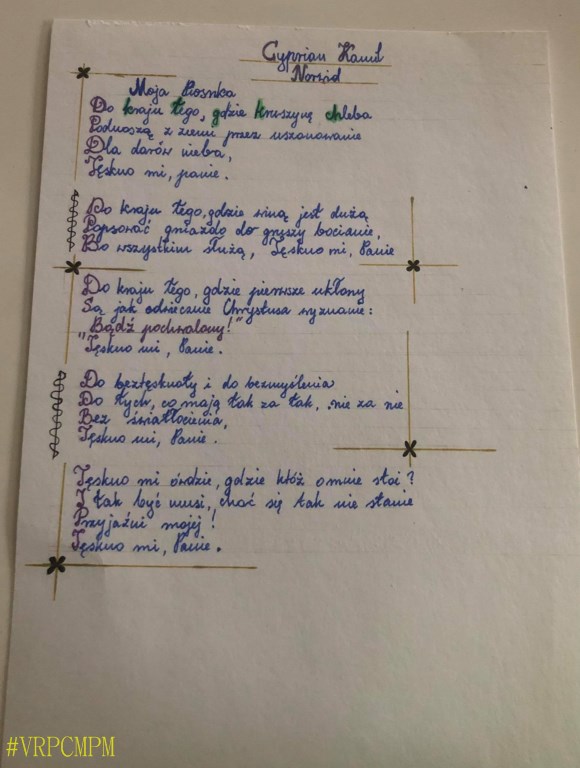 Cyprian Kamil
Norwid
Moja Piosnka
Do kraju tego, gdzie kruszynę chleba
Podnoszą z ziemi przez uszanowanie
Dla darów nieba,
Tęskno mi, panie.
Do kraju tego, gdzie winą jest dużą
Popsować gniazdo do gruszy bocianie,
Bo wszystkim służą, Tęskno mi, Panie
Do kraju tego, gdzie pierwsze ukłony
Są jak odwieczne Chrystusa wyznanie:
Bądź pochwalony!"
"Tęskno mi, Panie.
Do beztęsknoty i do bezmyślenia
Do tych, co mają tak za tak, nie za nie
Bez światłocienia,
Tęskno mi, Panie.
Tęskno mi ówdzie, gdzie któż o mnie stoi?
I tak być musi, choć się tak nie stanie
Przyjaźni mojej!
Tęskno mi, Panie.
#VRPCMPM